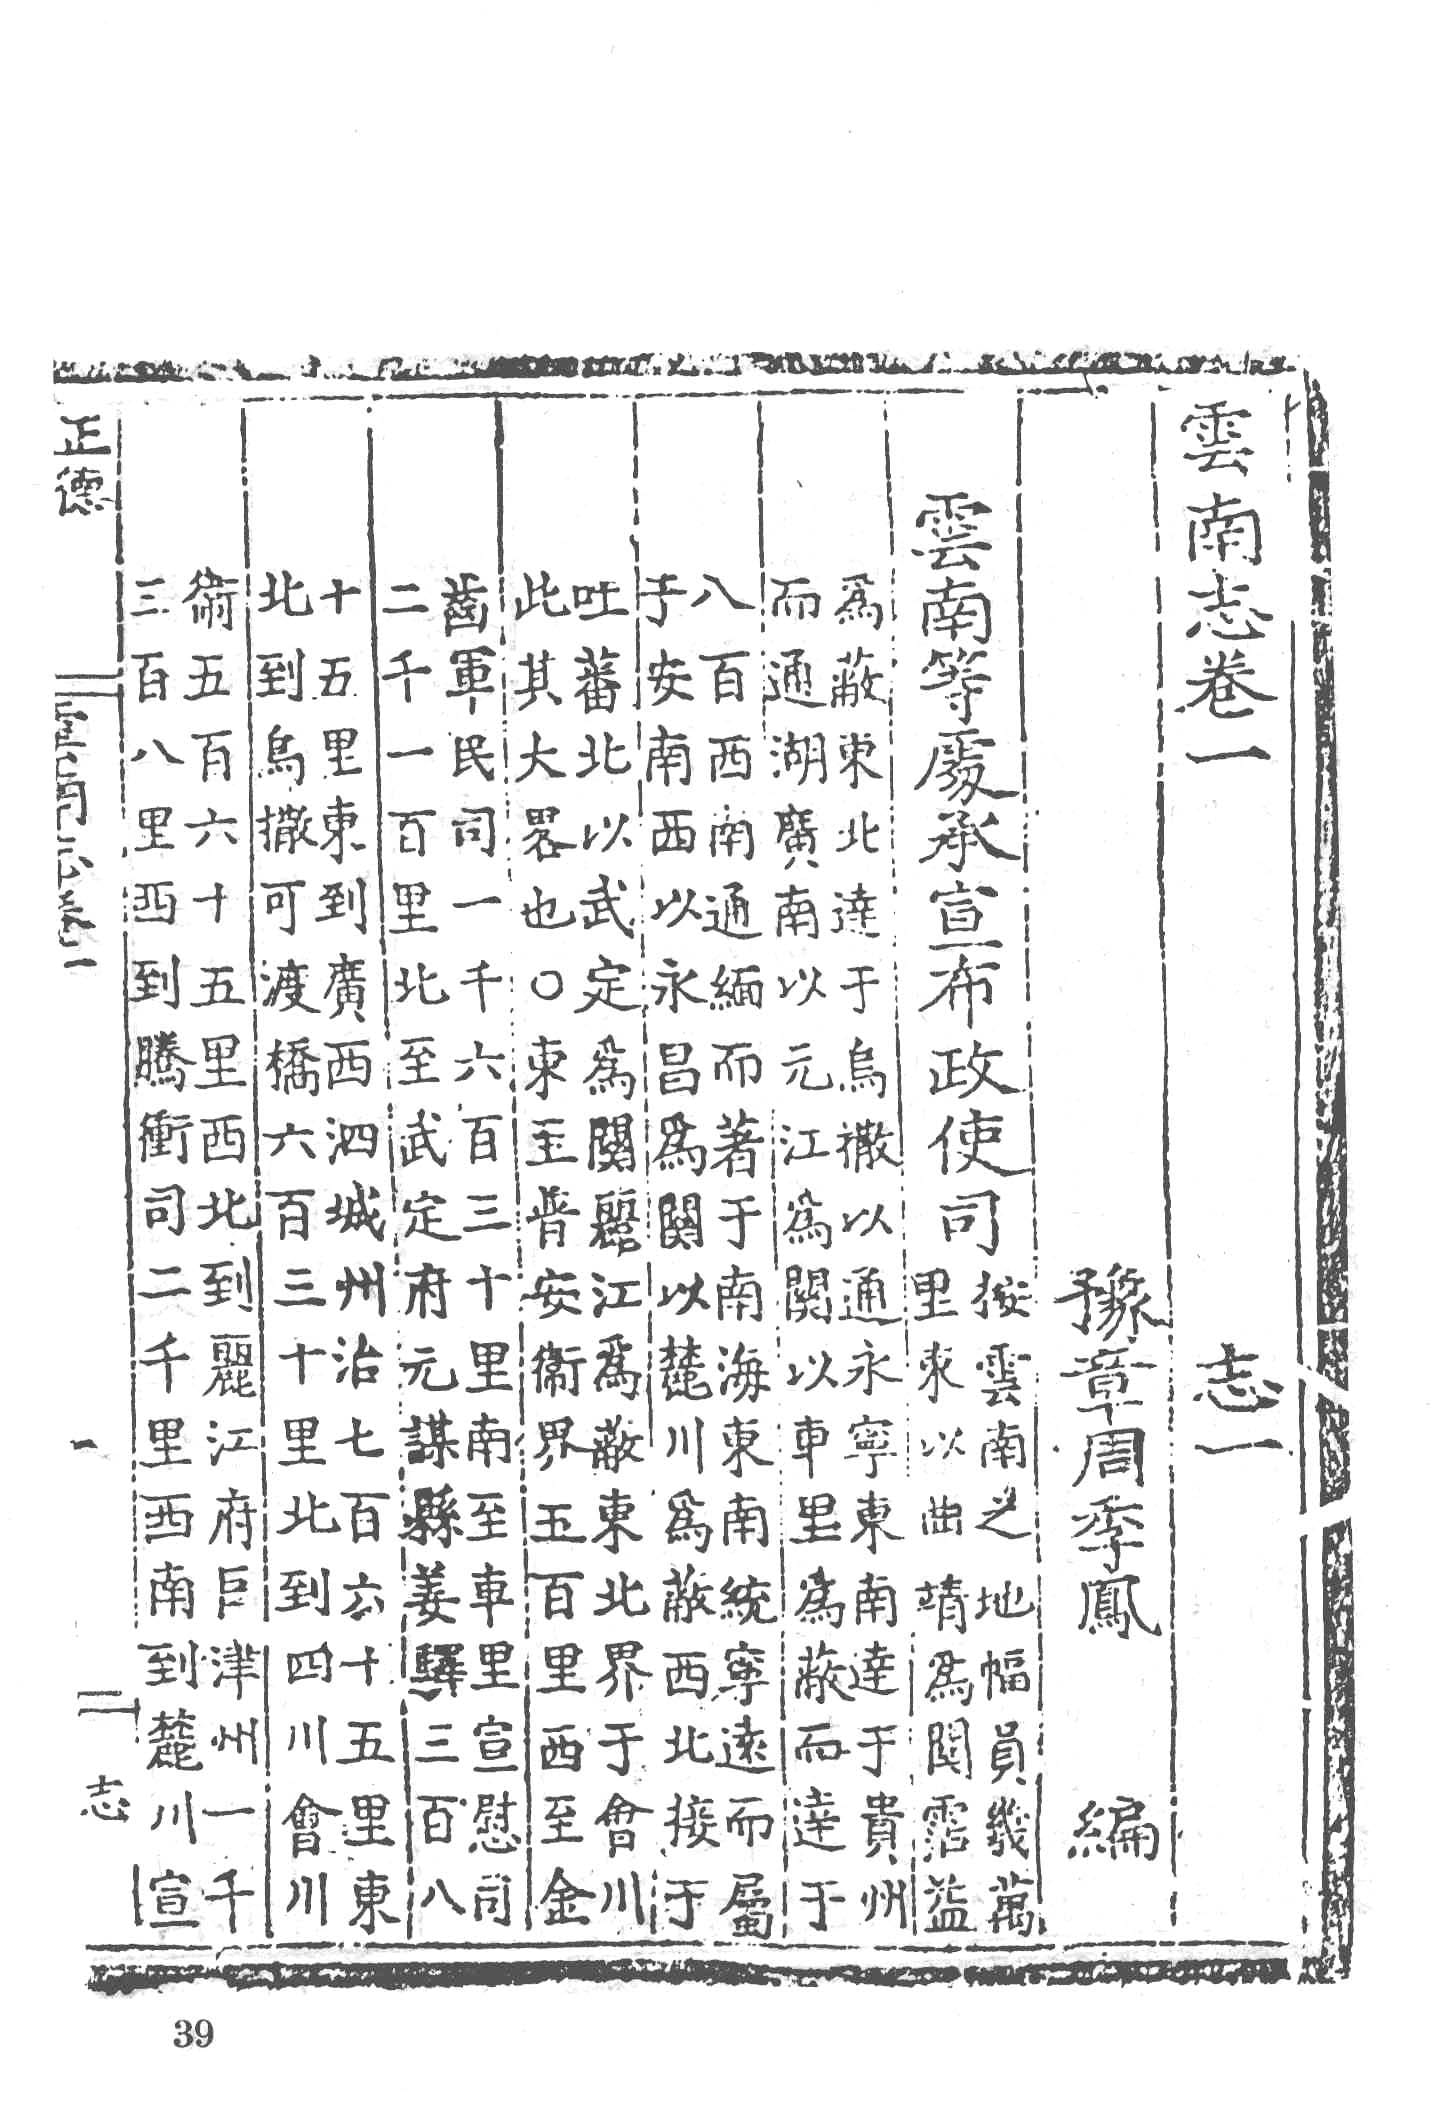 雲南志卷一　志一
豫章周季鳳　編
雲南等處承宣布政使司
按雲南之地幅員幾萬
里東以曲靖為関霑益
爲蔽東北達于烏撒以通永寧東南達于貴州
而通湖廣南以元江爲關以車里爲蔽而達于
八百西南通緬而著于南海東南統寧遠而屬
于安南西以永昌爲關以麓川爲蔽西北接于
吐蕃北以武定爲關麗江爲蔽東北界于會川
此其大畧也○東至普安衞界五百里西至金
齒軍民司一千六百三十里南至車里宣慰司
二千一百里北至武定府元謀縣姜驛三百八
十五里東到廣西泗城州治七百六十五里東
北到烏撒可渡橋六百三十里北到四川會川
衞五百六十五里西北到麗江府巨津州一千
三百八里西到騰衝司二千里西南到麓川宣
正德
雲南志卷一
一
志
39